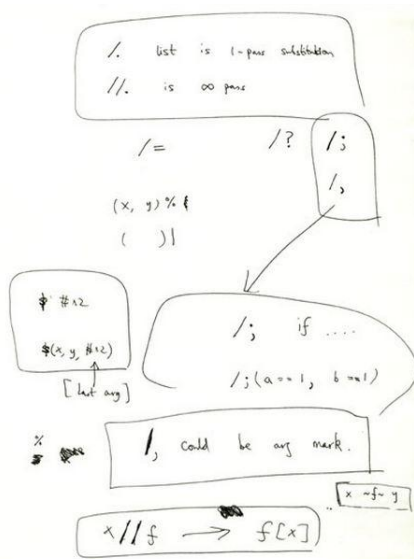 /. list is 1-pass substitution
//. is ∞ pass
/= /? /;
/,
(x, y)%
( )|
# ^2
$(x, y, #^2)
[last arg]
/; if ....
/;(a == 1, b == 1)
%
/, could be arg mark.
x ~f~ y
x//f → f[x]